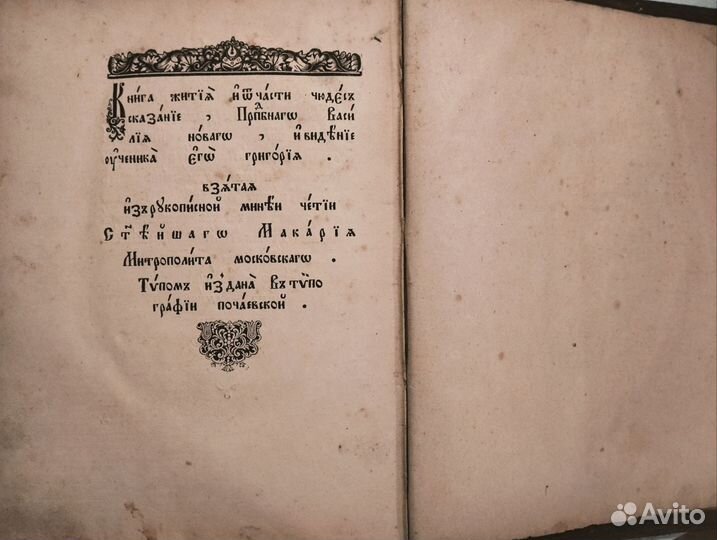 Кни́га житїѧ̀ и҆ ѿча́сти чюде́съ
сказа́нїе , Прпⷣбнагѡ Васи́
лїѧ но́вагѡ , и҆ видѣ́нїе
ᲂу҆ченика̀ є҆гѡ̀ григо́рїѧ .
взѧ́таѧ
и҆зъ рукопи́сной мине́и че́тїи
Ст҃ѣ́йшагѡ Мака́рїѧ
Митрополи́та моско́вскагѡ .
Тѵ́помъ и҆здана̀ въ тѵпо
гра́фїи поча́евской .
Avito